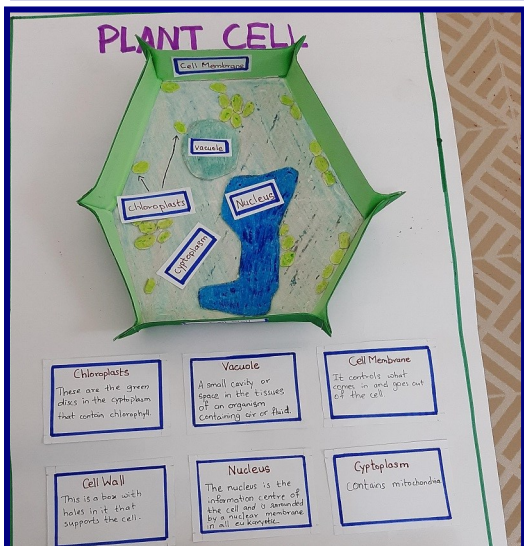 PLANT CELL
Cell Membrane
Vacuole
Chloroplasts
Nucleus
Cyptoplasm
Chloroplasts
These are the green
discs in the cyptoplasm
that contain chlorophyll.
Vacuole
A small cavity or
space in the tissues
of an organism
containing air or fluid.
Cell Membrane
It controls what
comes in and goes out
of the cell
Cell Wall
This is a box with
holes in it that
supports the cell.
Nucleus
The nucleus is the
information centre of
the cell and is surrounded
by a nuclear membrane
in all eukaryotic
Cyptoplasm
Contains mitochondria